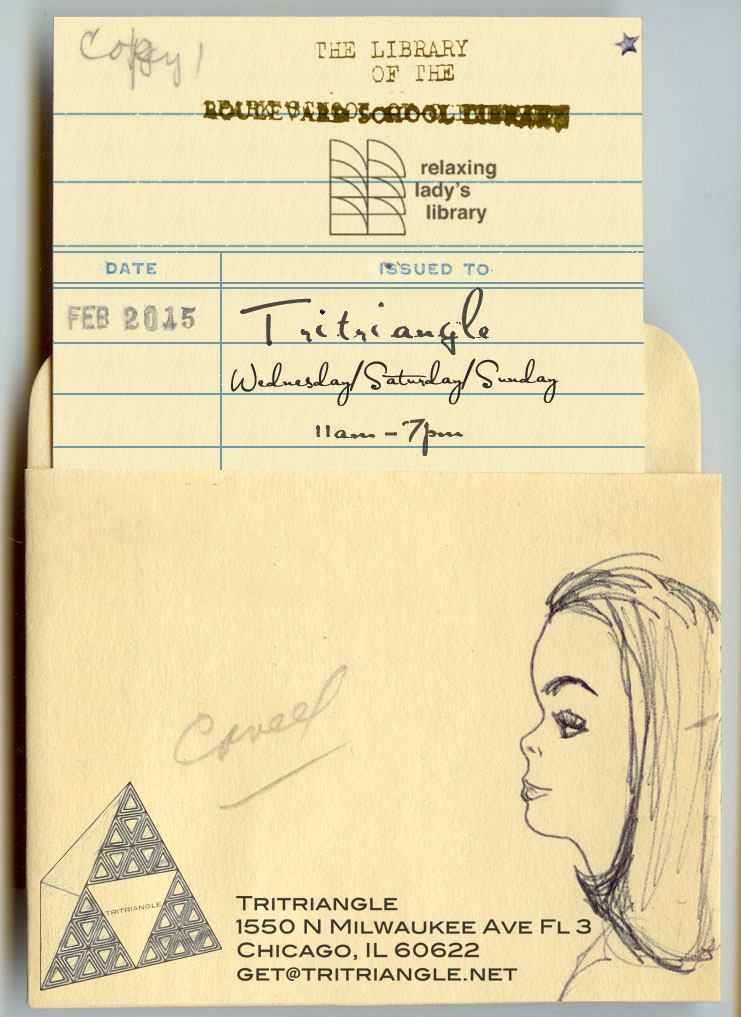 Copy 1
THE LIBRARY
OF THE
BOULEVARD SCHOOL LIBRARY
relaxing
lady's
library
DATE ISSUED TO
FEB 2015 Tritriangle
Wednesday/Saturday/Sunday
11am - 7pm
TRITRIANGLE
TRITRIANGLE
1550 N MILWAUKEE AVE FL 3
CHICAGO, IL 60622
GET@TRITRIANGLE.NET